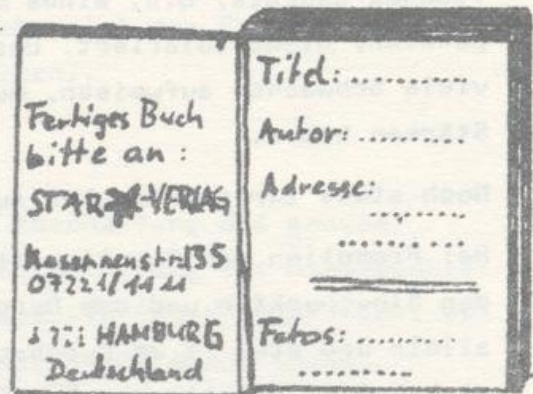 Fertiges Buch
bitte an:
STAR VERLAG
07221/1111
HAMBURG
Deutschland
Titel: ..........
Autor: ..........
Adresse:
..........
..........
Fotos: ..........
..........